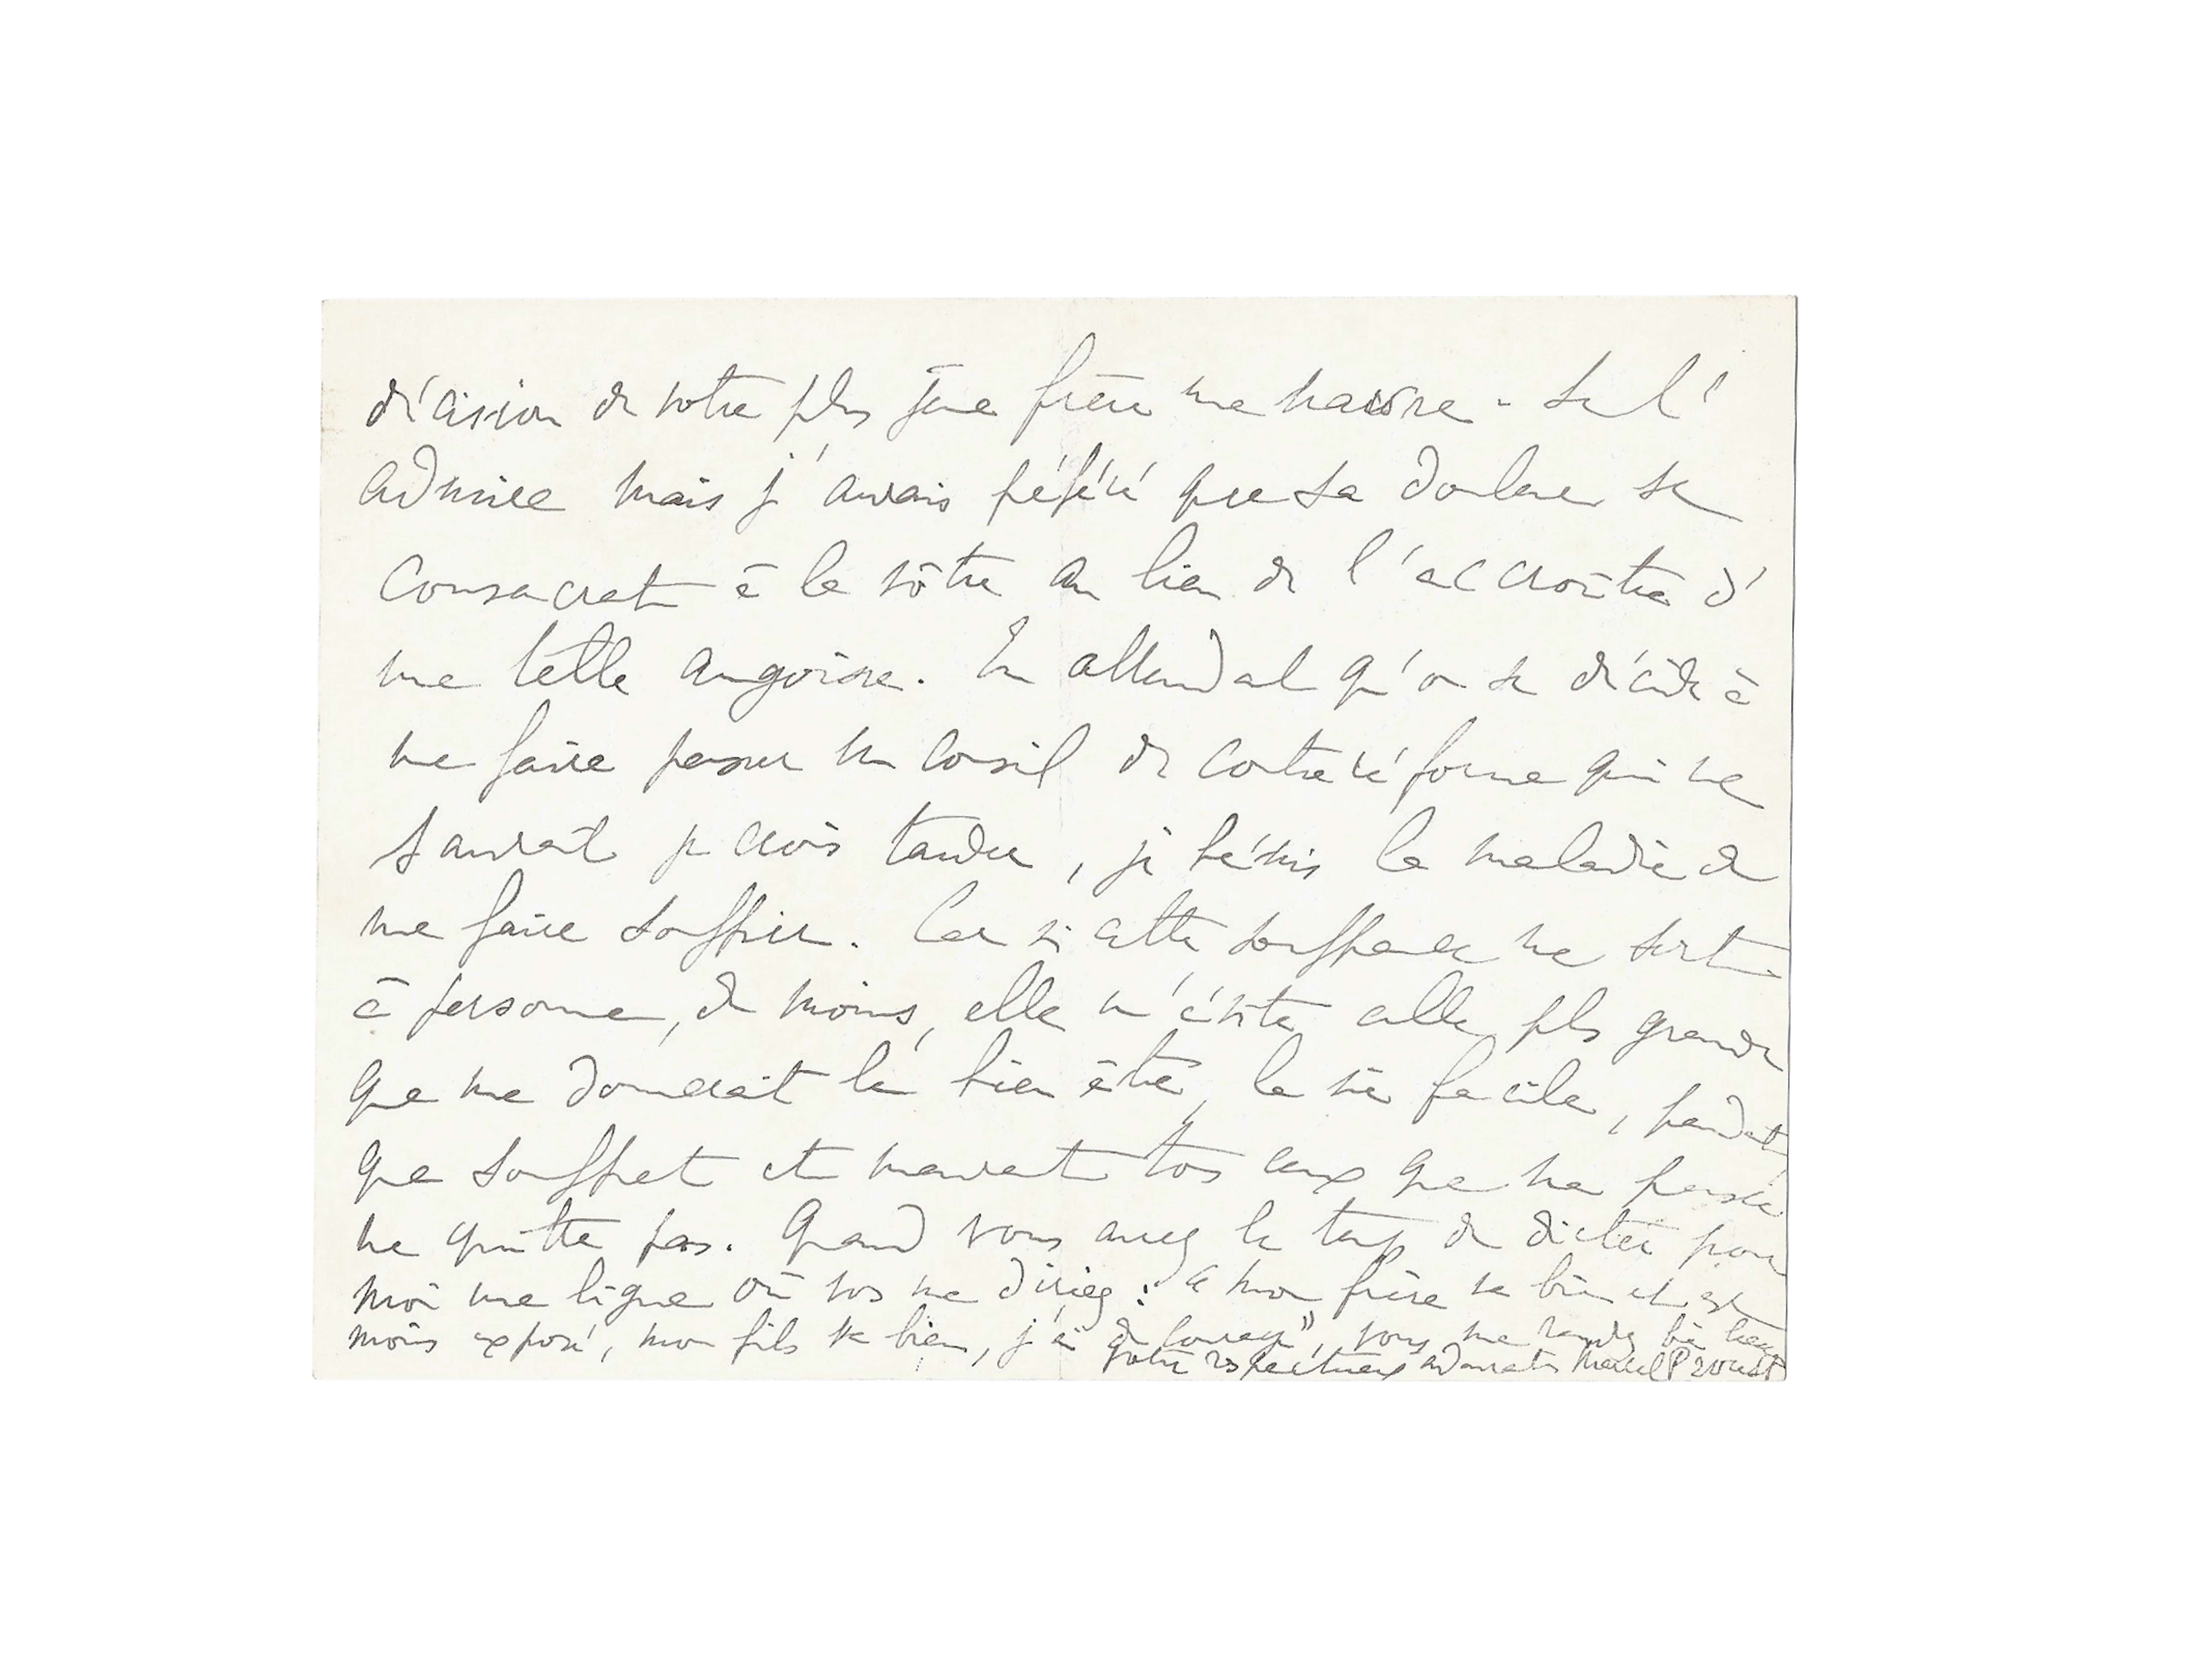 décision de votre plus jeune frère me navre. Je l'
admire mais j'aurais préféré que sa douleur se
consacrât à la vôtre au lieu de l'accroître d'
une telle angoisse. En attendant qu'on se décide à
me faire passer un conseil de contre réforme qui ne
saurait je crois tarder, je bénis la maladie de
me faire souffrir. Car si cette souffrance ne sert
à personne, du moins, elle m'évite celle plus grande
que me donnerait le bien être, la vie facile, pendant
que souffrent et meurent tous ceux que ma pensée
ne quitte pas. Quand vous aurez le temps de dicter pour
moi une ligne où vous me direz : "mon frère va bien et est
moins exposé, mon fils va bien, j'ai du courage", vous me rendrez bien heureux
Votre respectueux admirateur Marcel Proust